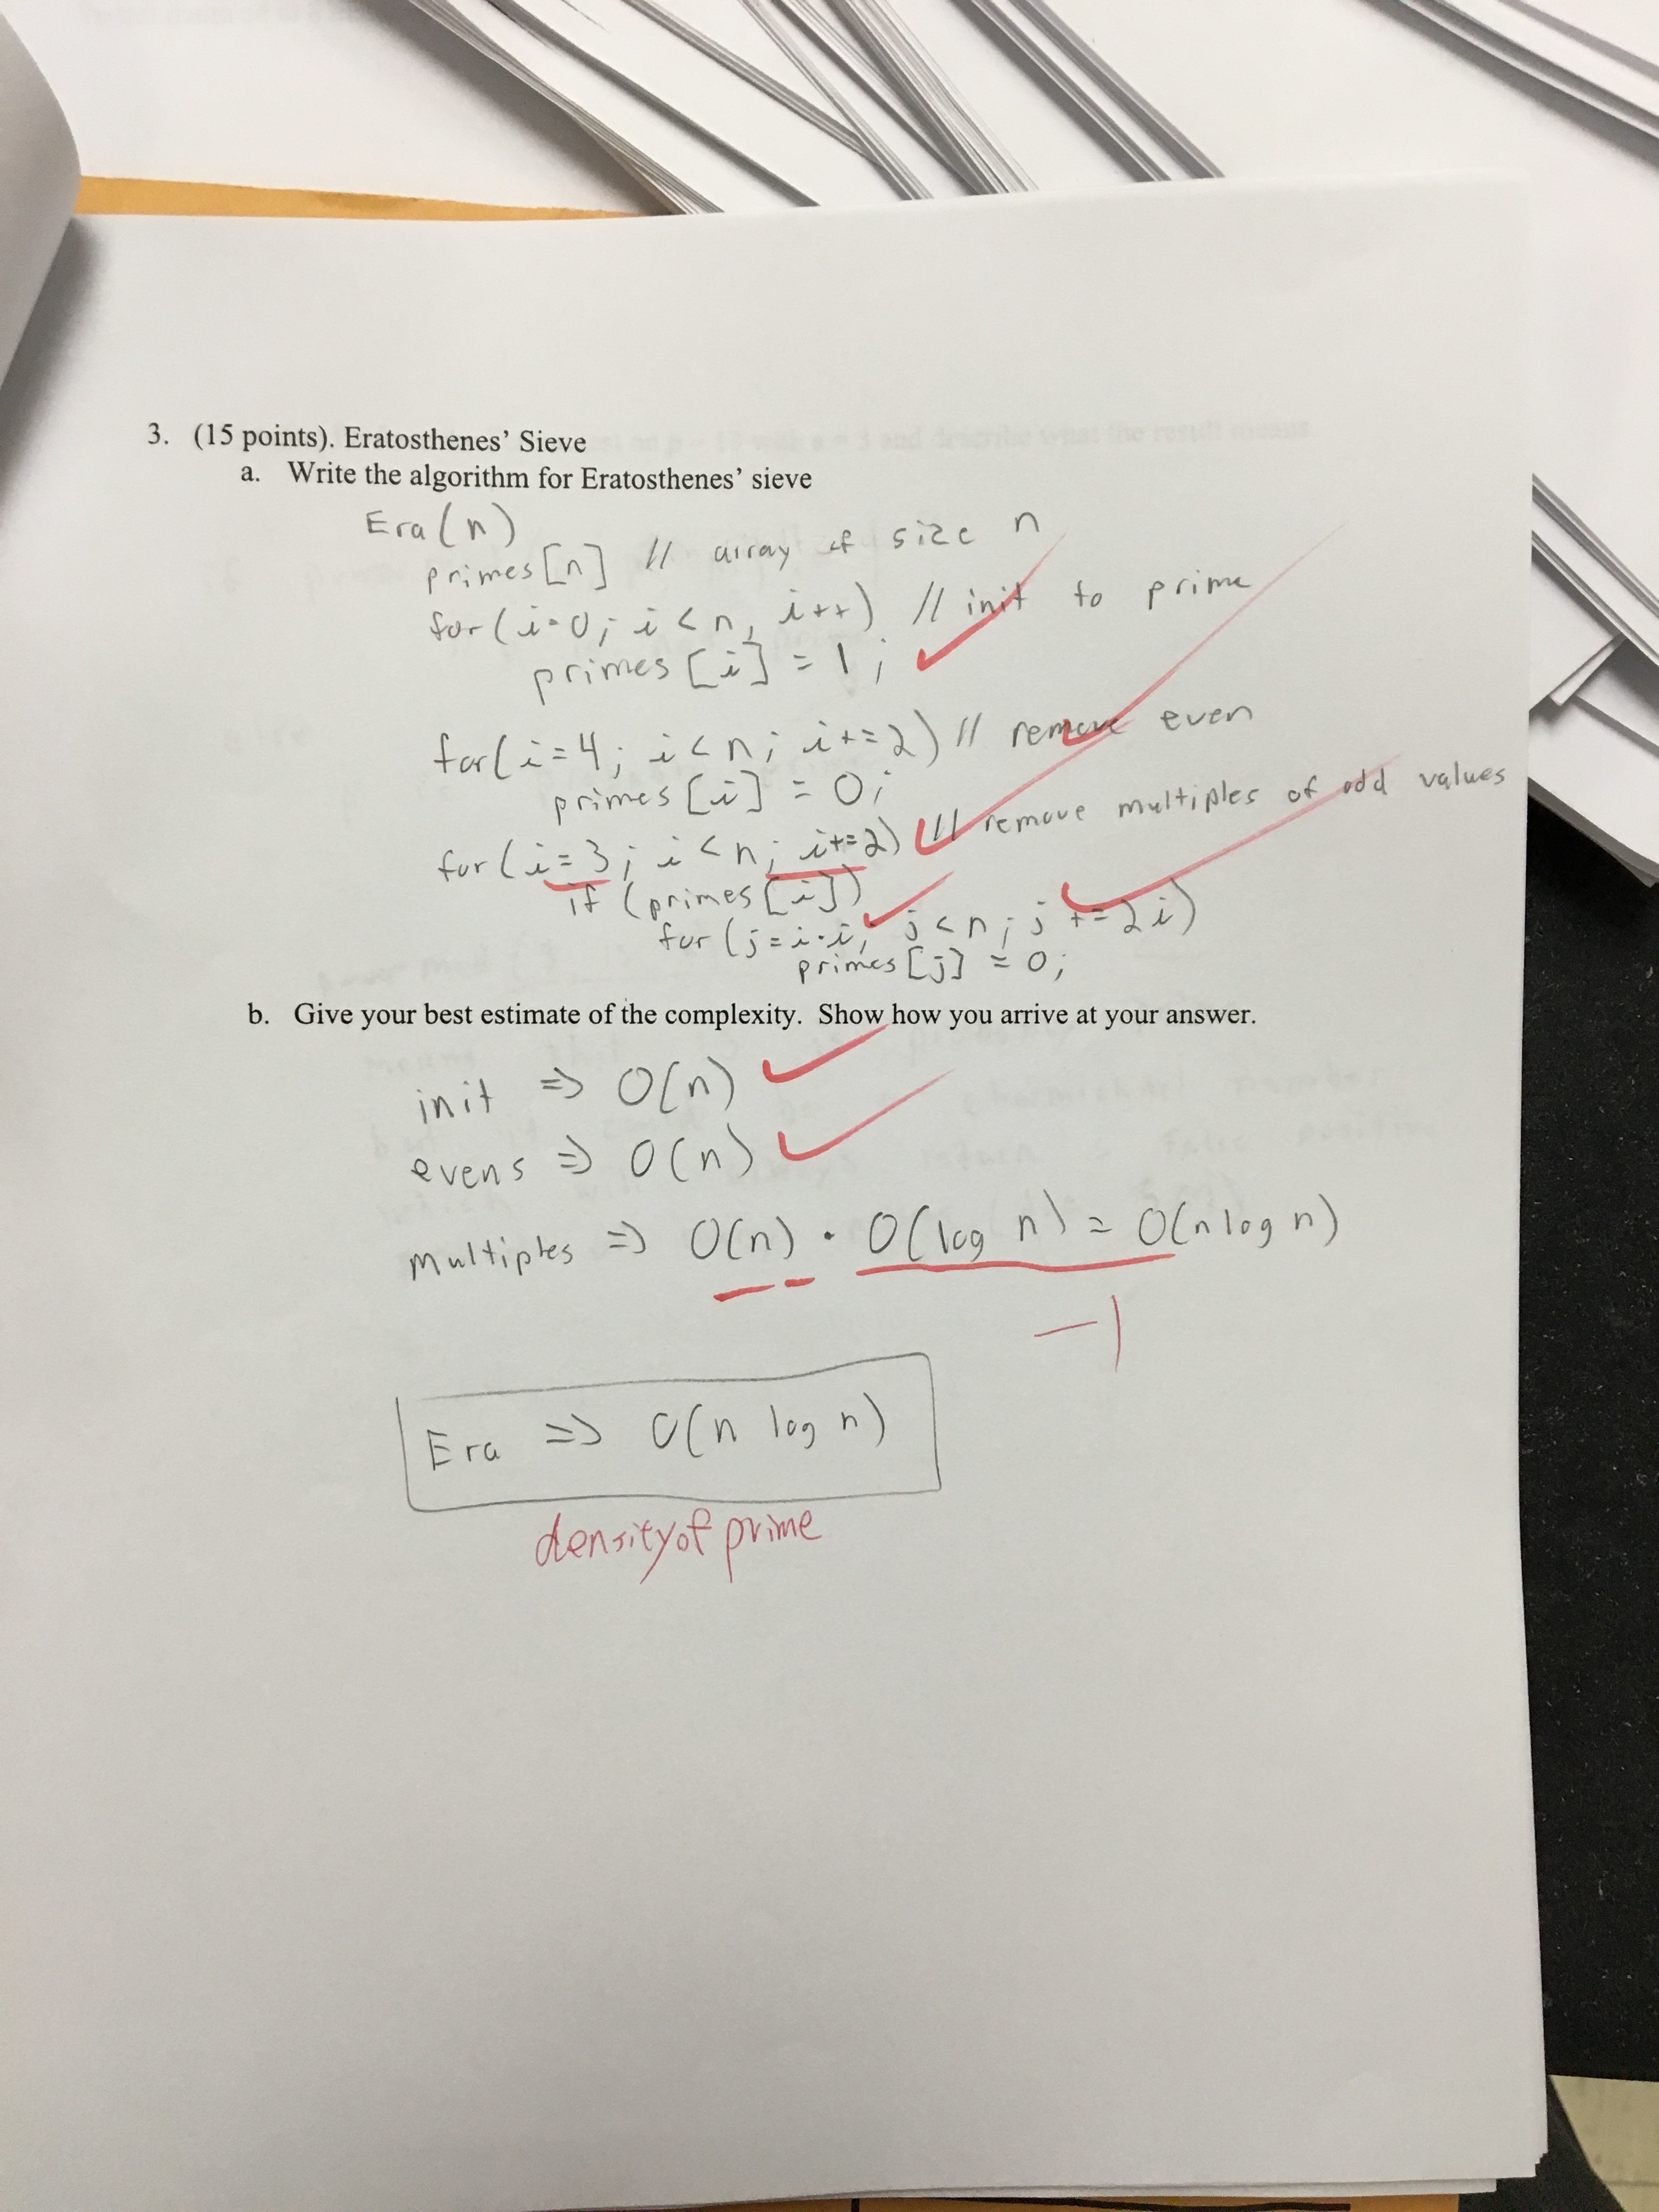 3. (15 points). Eratosthenes' Sieve
a. Write the algorithm for Eratosthenes' sieve
Era(n)
primes[n] // array of size n
for(i=0; i<n, i++) // init to prime
primes[i] = 1;
for(i=4; i<n; i+=2) // remove even
primes[i] = 0;
for(i=3; i<n; i+=2) // remove multiples of odd values
if (primes[i])
for(j=i·i; j<n; j+=2i)
primes[j] = 0;
b. Give your best estimate of the complexity. Show how you arrive at your answer.
init => O(n)
evens => O(n)
multiples => O(n) · O(log n) = O(n log n)
-1
Era => O(n log n)
density of prime